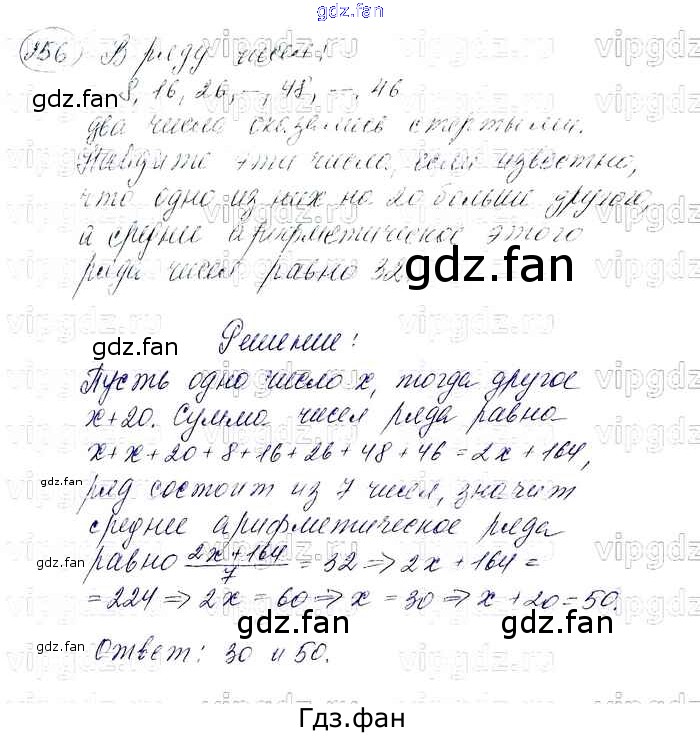 gdz.fan
256) В ряду чисел:
8, 16, 26, –, 48, –, 46
два числа оказались стертыми.
Найдите эти числа, если известно,
что одно из них на 20 больше другого,
а среднее арифметическое этого
ряда чисел равно 32
Решение:
Пусть одно число x, тогда другое
x+20. Сумма чисел ряда равно
x+x+20+8+16+26+48+46=2x+164,
ряд состоит из 7 чисел, значит
среднее арифметическое ряда
равно (2x+164)/7 = 32 ⇒ 2x+164=
=224 ⇒ 2x = 60 ⇒ x = 30 ⇒ x+20=50.
Ответ: 30 и 50.
Гдз.фан